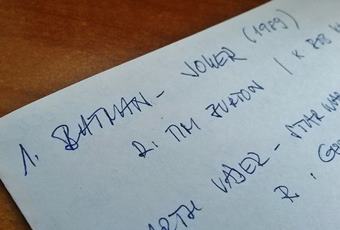 1. BATMAN - JOKER (1989)
R: TIM BURTON /
DARTH VADER - STAR WAR
R: GEO